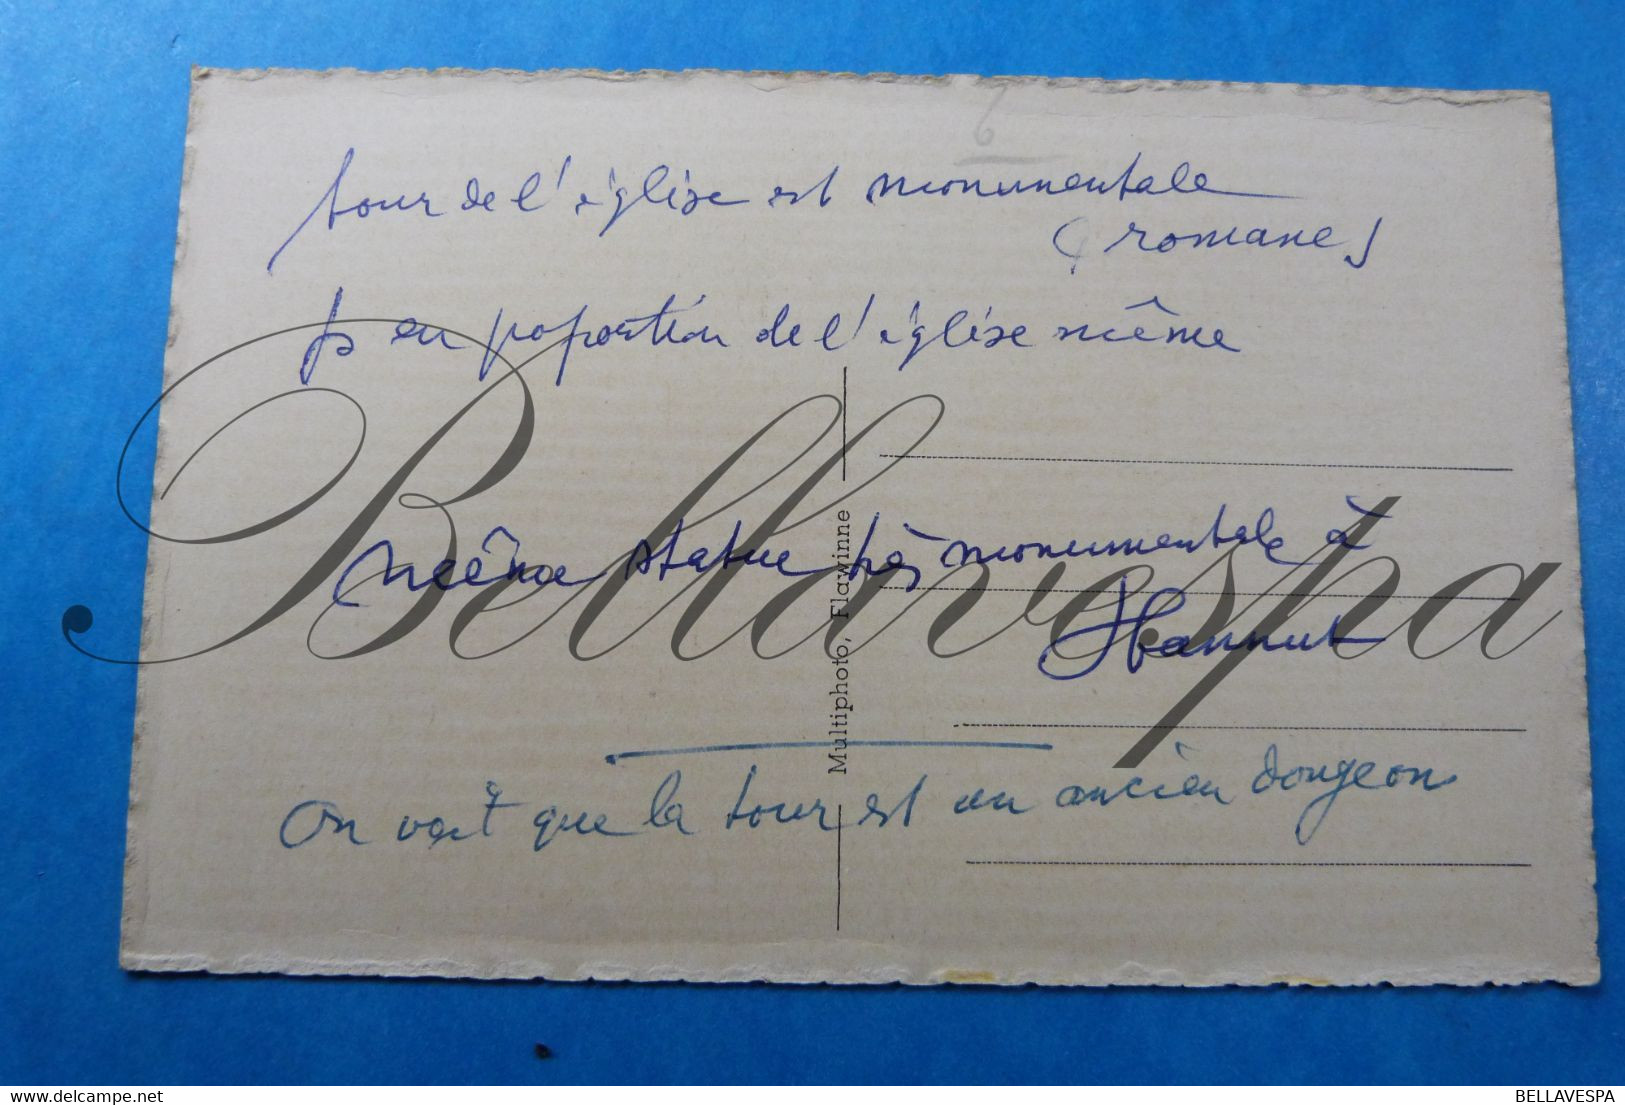 6
tour de l'église est monumentale
(romane)
en poportion de l'église même
même statue très monumentale à
Hannut
Multiphoto, Flawinne
On voit que la tour est un ancien dongeon
Bellavespa
delcampe.net
BELLAVESPA